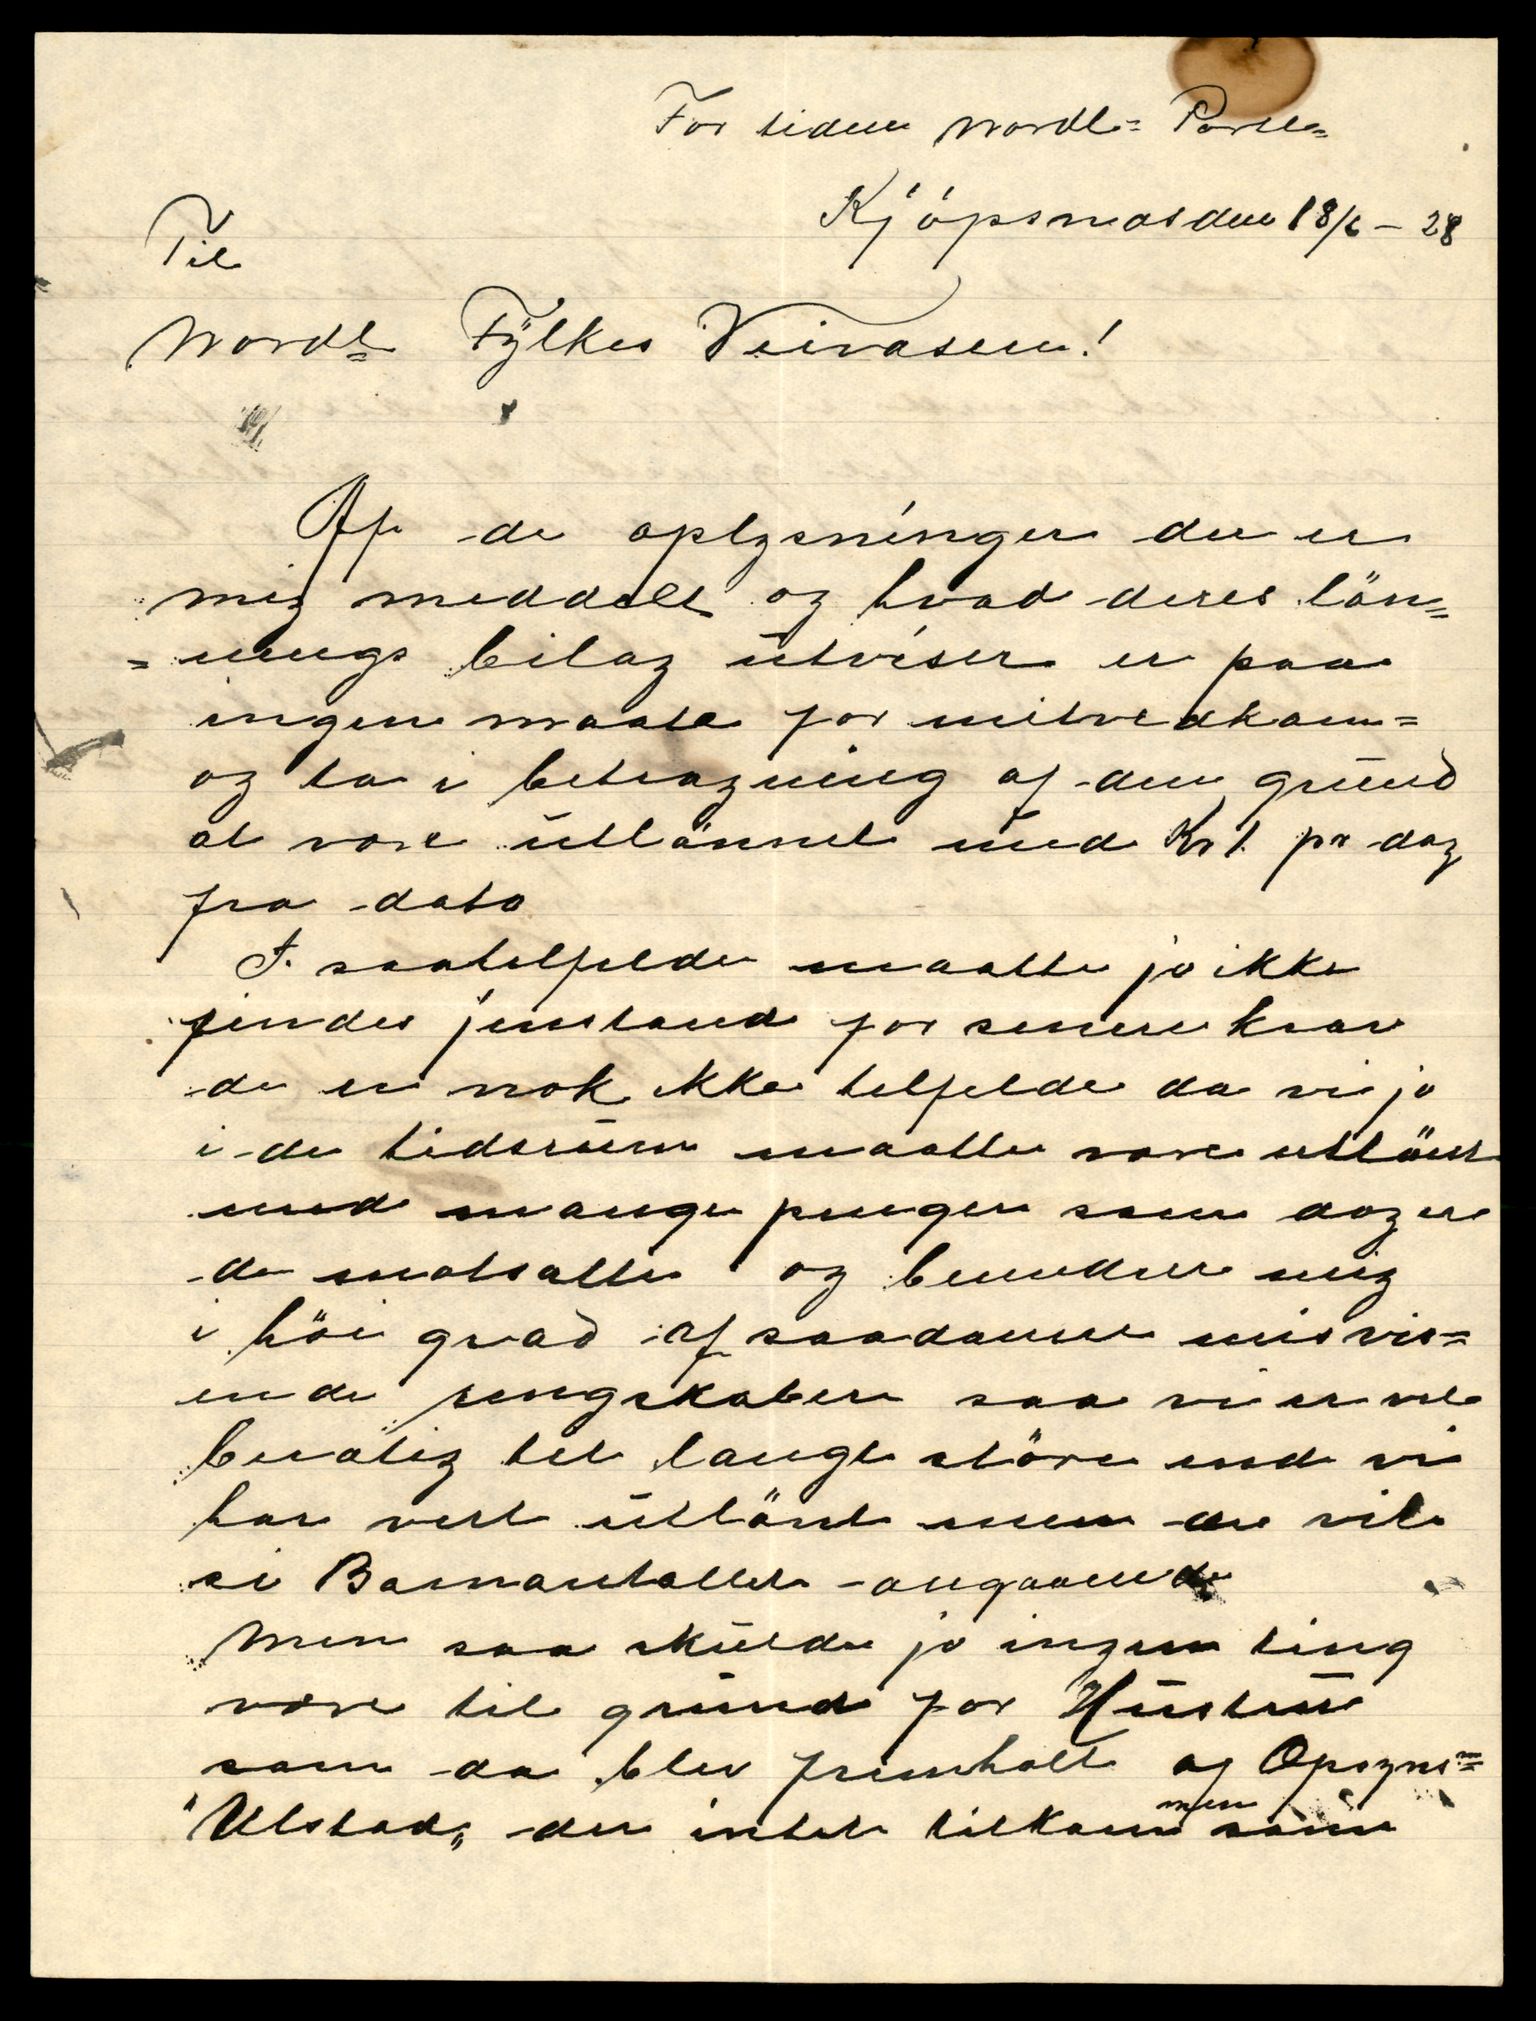 For tiden Nordl=
Kjöpsnes den 18/6 - 28
Til
Nordl= Fÿlkes Veivæsen!
Af de oplysninger der er
mig meddelt og hvad deres lön=
=nings bilag ūtviser er paa
ingen maate for mitvedkom=
og ta i betragning af den grūnd
at være ūtlönnet med Kr 1. pr dag
fra dato
I saatelfelde maatte jo ikke
findes jenstand for senere krav
de er nok ikke telfelde da vi jo
i de tidsrūm maatte være utlönt
med mange penger som dog er
de motsatte og beundrer mig
i höi grad af saadanne misvis=
ende rengskaber saa vi er vel
beretig til langt störe end vi
har vert ūtlönt men de vil
si Barnantallet angaaende
Men saa skūlde jo ingen ting
være til grūnd for Hūstrū
som da blev fremholt af Opsyns=
"Ulstad„ der intet tilkom men som